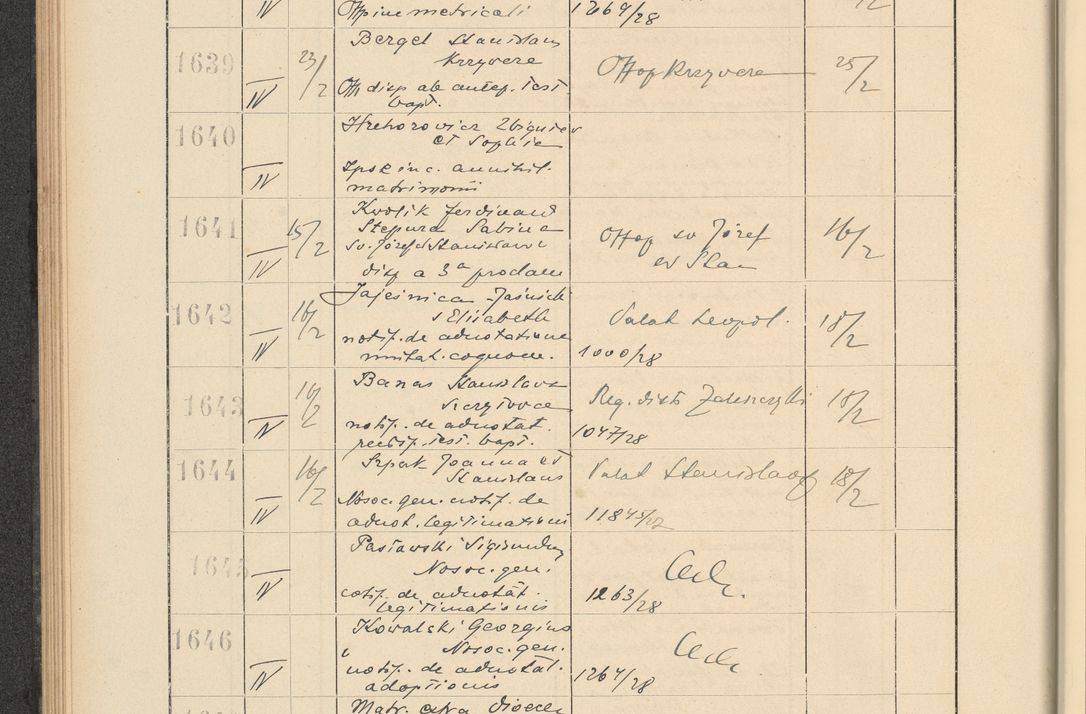 IV
metricali 1269/28
1639 IV 23/2
Bergel Stanislaus
Krzywcze
Off disp ab antep. test.
bapt.
Off op Krzywcze 25/2
1640 IV
Hrehorowicz Zbigniew
et Sophia
annihil.
matrimonii
1641 IV 15/2
Krolik Ferdinand
Stepura Sabina
Sv. Józef Stanisławów
disp a 3a proclam
Off op sv Józef 16/2
ev Stan
1642 IV 16/2
Jajeśnica Jaśnicki
Elisabeth
notif. de adnotatione
mutat. cognom.
Palat Leopol. 18/2
1000/28
1643 IV 16/2
Banas Stanislaus
notif. de adnotat.
rectif. test. bapt.
Reg. distr Zaleszczyki 18/2
1047/28
1644 IV 16/2
Szpak Joanna et
Stanislaus
Nosoc. gen. notif. de
adnot. legitimationis
Palat Stanislaop 18/2
11845/27
1645 IV
Pasławski Sigismundus
Nosoc. gen.
notif. de adnotat.
legitimationis
1263/28
1646 IV
Kowalski Georgius
Nosoc. gen.
notif. de adnotat.
adoptionis
1264/28
Matr. extra dioecen